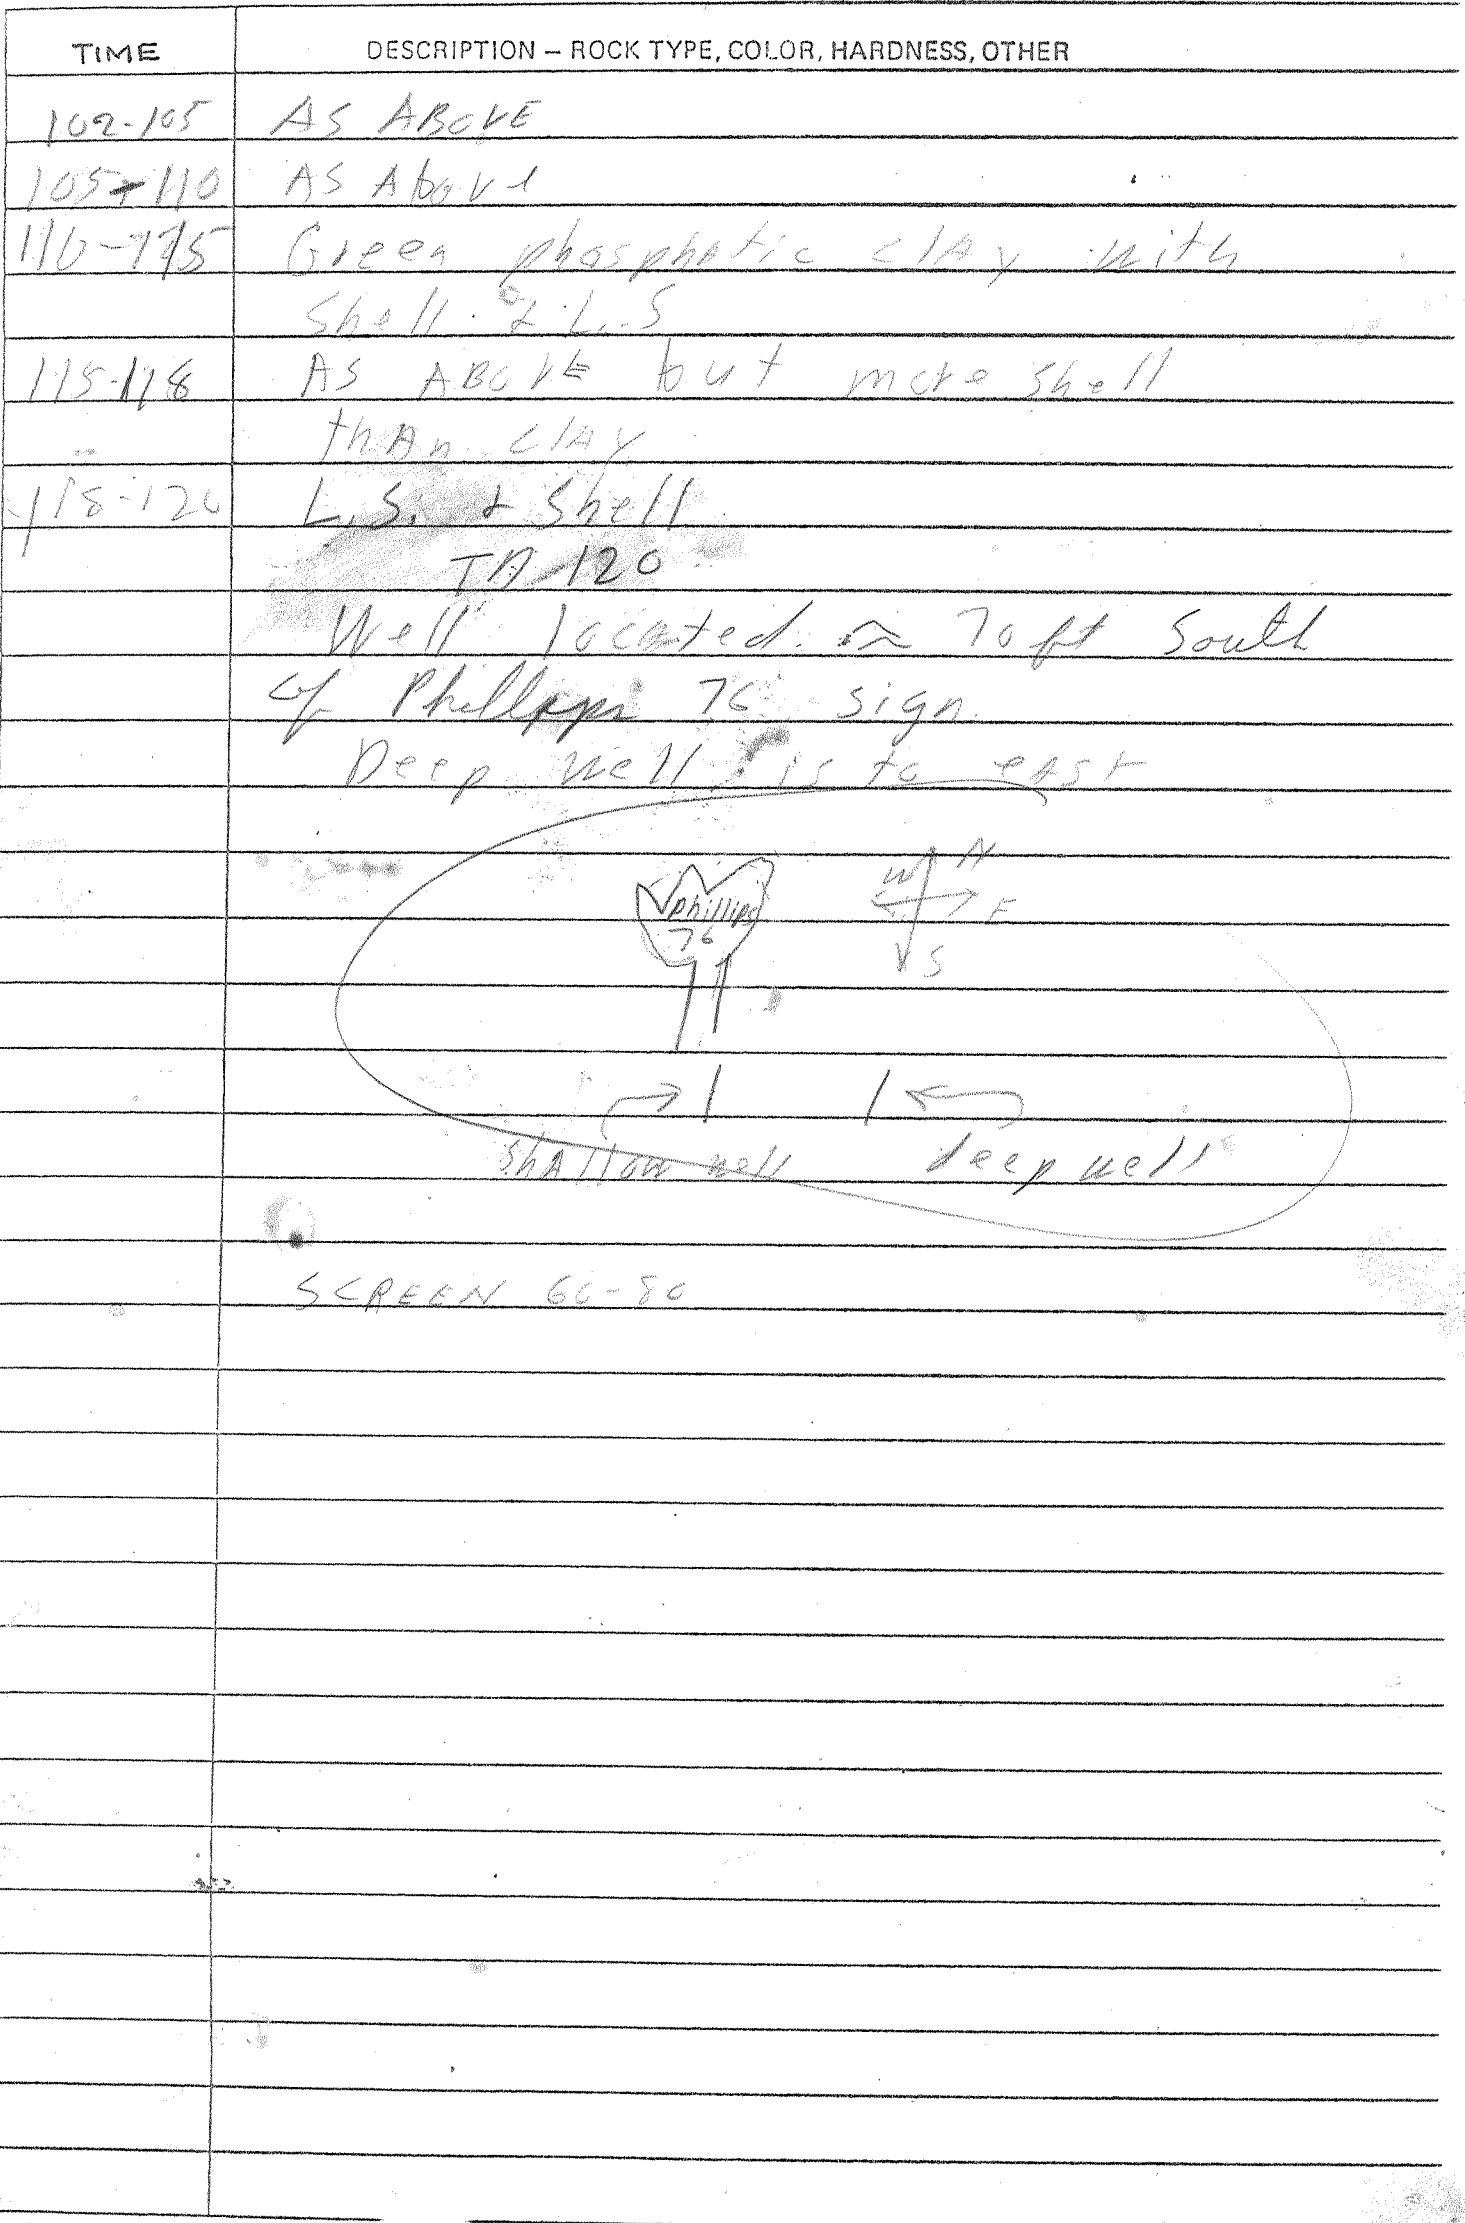 TIME DESCRIPTION – ROCK TYPE, COLOR, HARDNESS, OTHER
102-105 AS ABOVE
105-110 AS Above
110-115 Green phosphatic clay with
Shell & L.S
115-118 AS ABOVE but more shell
than clay
118-120 L.S. & Shell
120
Well located ≈ 70 ft South
of Phillips 76 sign
Deep well is to east
N
W
phillips
E
76
S
shallow well deep well
SCREEN 60-80